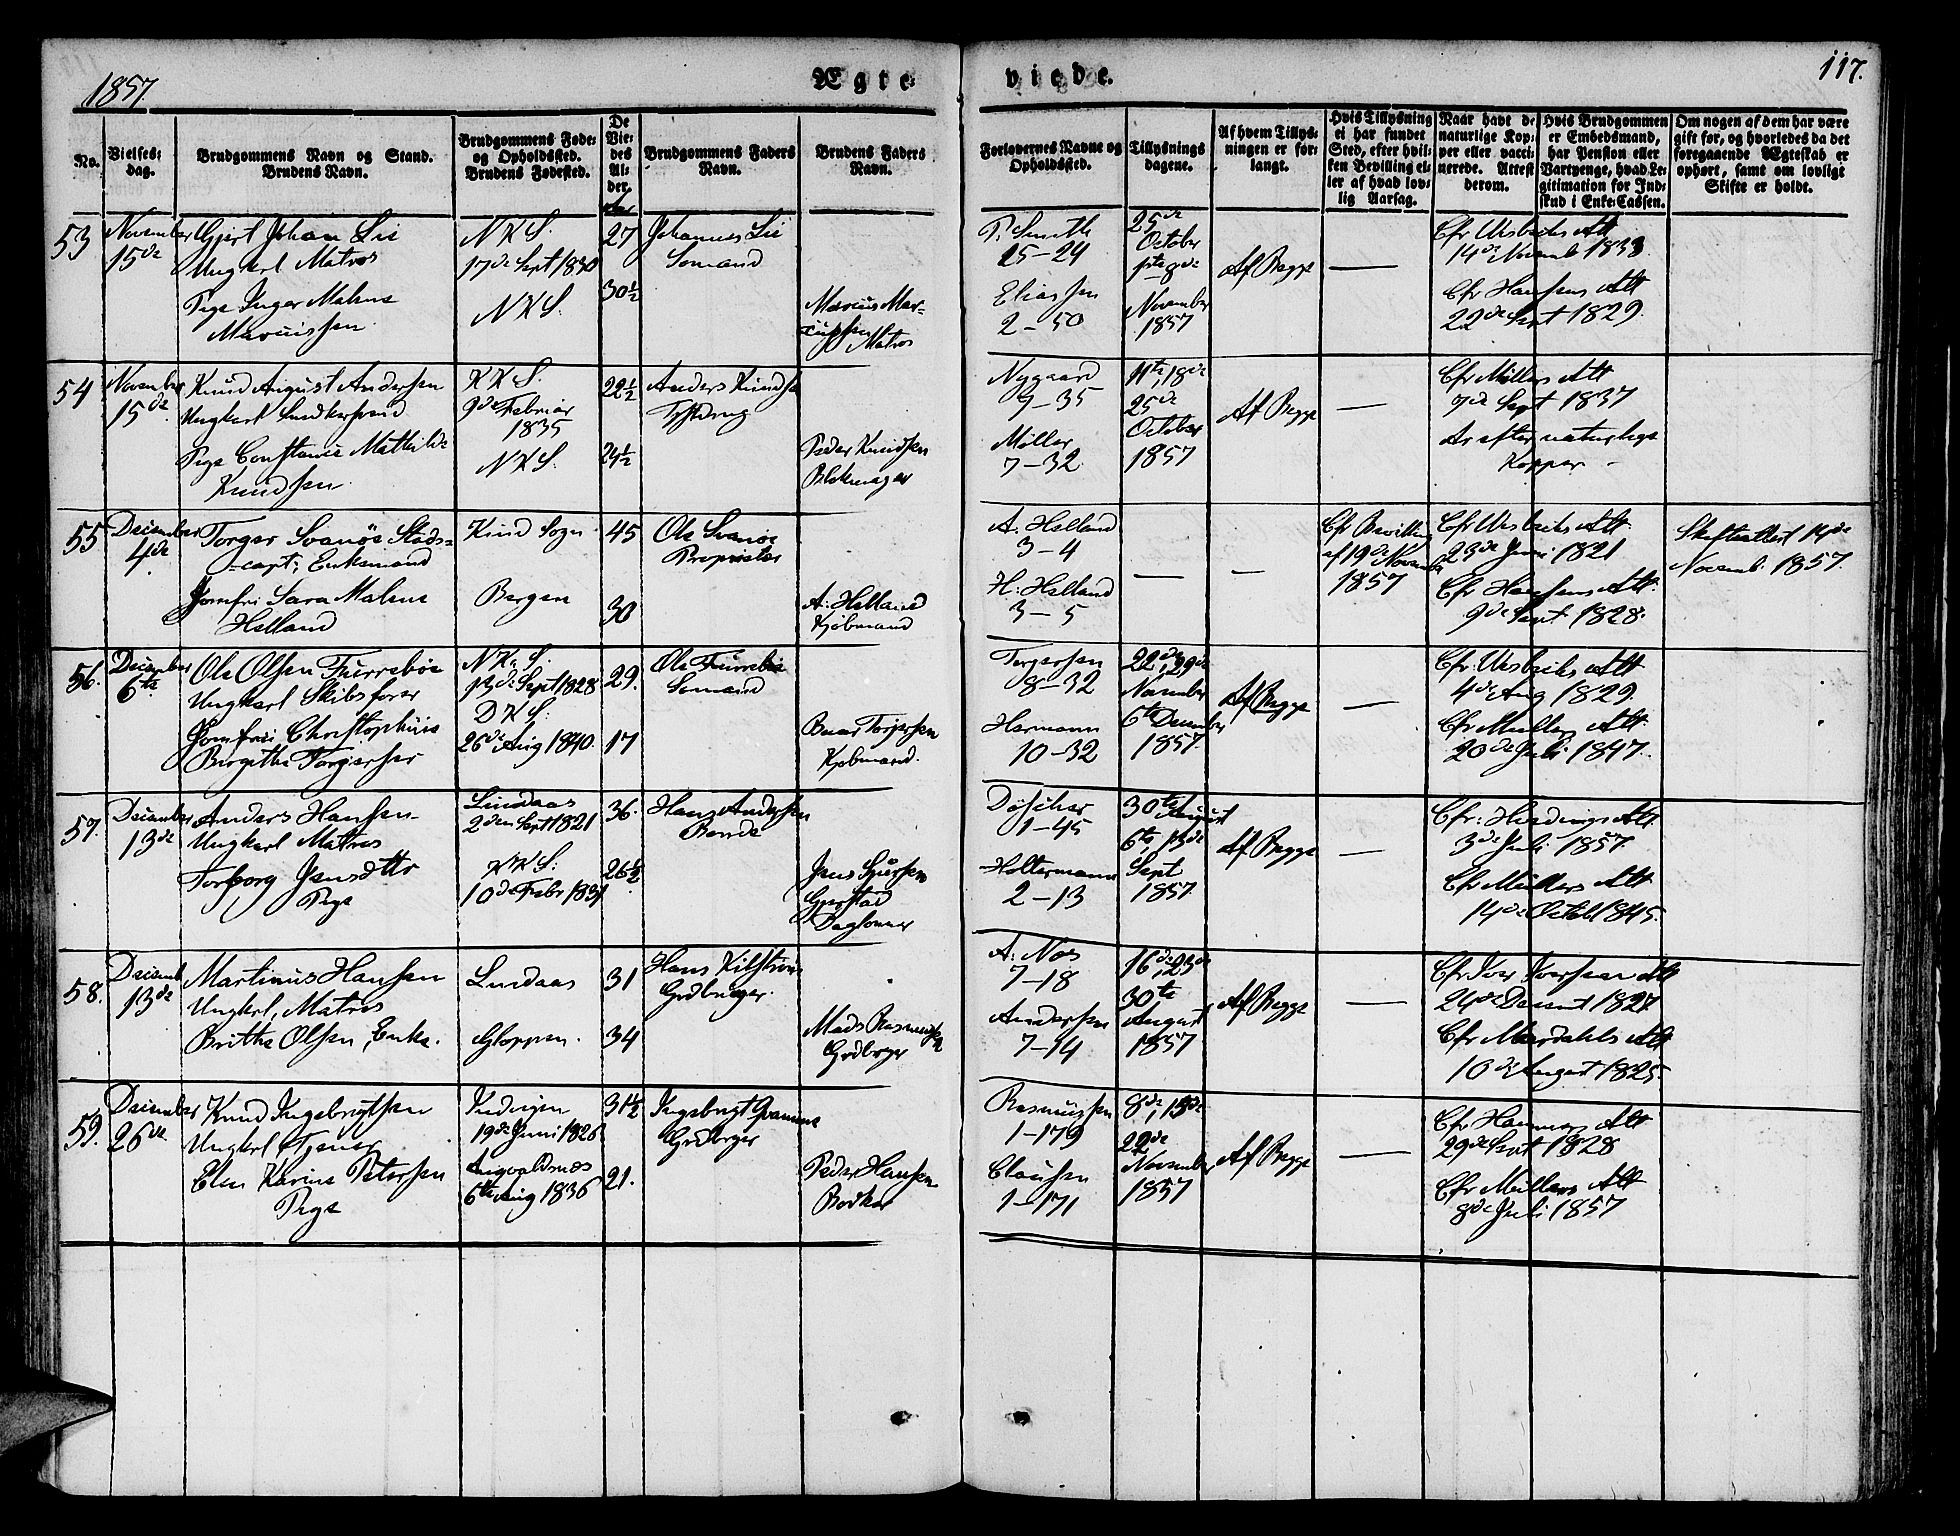 1857.
Ægte
viede.
117.
No.
Vielses-
dag.
Brudgommens Navn og Stand.
Brudens Navn.
Brudgommens Føde-
og Opholdssted.
Brudens Fødested.
De
Vie-
des
Al-
der.
Aar
Brudgommens Faders
Navn.
Brudens Faders
Navn.
Forlovernes Navne og
Opholdssted.
Tillysnings
dagene.
Af hvem Tillys-
ningen er for-
langt.
Hvis Tillysning
ei har fundet
Sted, efter hvil-
ken Bevilling el-
ler af hvad lov-
lig Aarsag.
Naar havt de
naturlige Kop-
per eller vacci-
nerede. Attest
derom.
Hvis Brudgommen
er Embedsmand,
har Pension eller
Vartpenge, hvad Le-
gitimation for Ind-
skud i Enke-Cassen.
Om nogen af dem har være
gift før, og hvorledes da det
foregaaende Ægteskab er
ophørt, samt om lovligt
Skifte er holdt.
53
November
15de
Gjert Johan Lie
Ungkarl Matros
Pige Inger Malene
Marcussen
NKS.
17de Sept 1830
NKS.
27
30½
Johannes Lie
Sømand
Marcus Mar-
cussen
Matros
P. Smith
25-24
Eliassen
2-50
25de
October
1ste 8de
November
1857
Af Begge
—
Cfr Uchermanns Att
14de Novemb 1833
Cfr Hansens Att
22de Sept 1829.
54
November
15de
Knud August Andersen
Ungkarl Snedkersvend
Pige Constance Mathilde
Knudsen
KKS.
9de Februar
1835
NKS.
22½
24½
Anders Knudsen
Peder Knudsen
Blokmager
Nygaard
9-35
Møller
7-32
11te, 18de
25de
October
1857
Af Begge
—
Cfr Müllers Att
7de Sept 1837
Ar efter naturlige
Kopper -
55
December
4de
Torger Svanöe Stads-
capt; Enkemand
Jomfru Sara Malene
Helland
Kind Sogn
Bergen
45
30
Ole Svanöe
Proprietær
A. Helland
Kjøbmand
A. Helland
3-4
H. Helland
3-5
—
—
Cfr Bevilling
af 19de November
1857
23de Juni 1821
Cfr Hansens Att.
9de Sept 1828.
Skifteattest 14de
Novemb. 1857.
56.
December
6te
Ole Olsen Furreböe
Ungkarl Skibsfører
Jomfru Christophine
Birgitha Torgersen
NKS.
13de Sept 1828
DKS.
26de Aug 1840.
29.
17
Ole Furreböe
Sømand
Torgersen
Kjøbmand.
Torgersen
8-32
Hermann
10-32
22de, 29de
November
6te December
1857.
Af Begge
—
4de Aug 1829.
Cfr Müllers Att.
20de Juli 1847.
57.
December
13de
Anders Hansen
Ungkarl Matros
Torborg Jensdttr
Pige
Lindaas
2den Sept 1821
KKS.
10de Febr 1831
36.
26½
Hans Andersen
Bonde
Jens
Gjerstad
Daglønner
1-45
Holtermann
2-13
30te August
6te, 13de
Sept
1857
Af Begge
—
Cfr. Hvidings Att.
3de Juli 1857.
Cfr Müllers Att
14de Octob 1845.
58.
Decemb.
13de
Martinus Hansen
Ungkrl, Matros
Brithe Olsen, Enke.
Lindaas
Gloppen.
31
34
Hans Kilstrøm
Grdbruger.
Mads Rasmussen
Grdbrger
A. Næs
7-18
Andersen
7-14
16de, 23de
30te
August
1857
Af Begge
—
Cfr Iver Iversens Att
24de Decemt 1827.
Cfr Mardahls Att
10de August 1825.
59.
December
26de
Knud Ingebrigtsen
Ungkrl Tjener
Elen Karine Petersen
Pige
Indvigen
19de Juni 1826
Augvaldsnæs
6te Aug 1836
31½
21.
Ingebrigt
Grdbrger
Peder Hansen
Bødker
Rasmussen
1-179
Claussen
1-171
8de, 15de
22de
November
1857
Af Begge
—
Cfr Hammers Att
29de Sept 1828
Cfr Müllers Att
8de Juli 1857